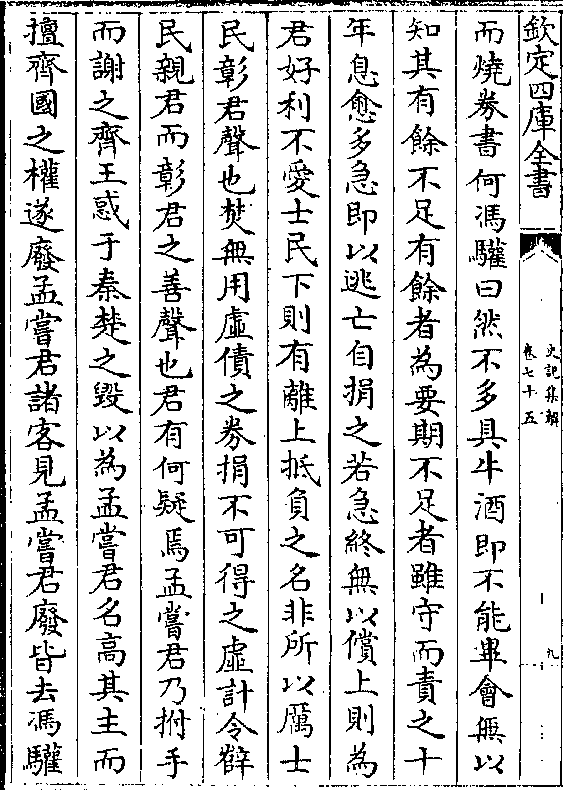 欽定四庫全書
史記集解
卷七十五
九
而燒券書何馮驩曰然不多具牛酒即不能畢會無以
知其有餘不足有餘者為要期不足者雖守而責之十
年息愈多急即以逃亡自捐之若急終無以償上則為
君好利不愛士民下則有離上抵負之名非所以厲士
民彰君聲也焚無用虛債之券捐不可得之虛計令薛
民親君而彰君之善聲也君有何疑焉孟嘗君乃拊手
而謝之齊王惑于秦楚之毀以為孟嘗君名高其主而
擅齊國之權遂廢孟嘗君諸客見孟嘗君廢皆去馮驩